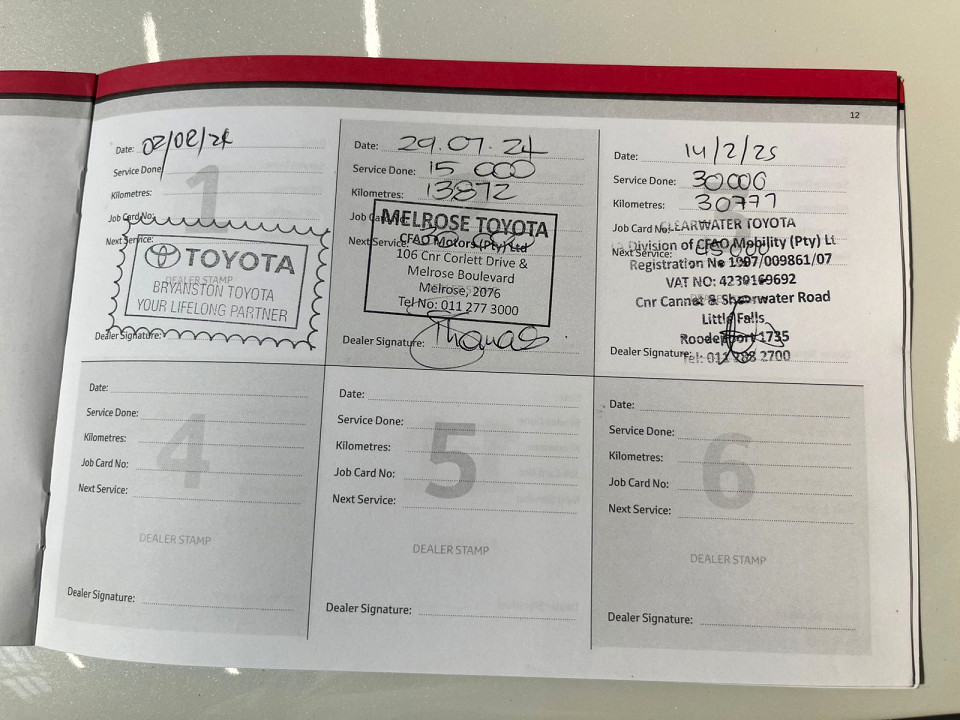 12
Date: 02/02/24
Service Done:
Kilometres:
Job Card No:
Next Service:
1
TOYOTA
DEALER STAMP
BRYANSTON TOYOTA
YOUR LIFELONG PARTNER
Dealer Signature:
Date: 29.07.24
Service Done: 15 000
Kilometres: 13872
Job Card No:
Next Service:
MELROSE TOYOTA
CFAO Motors (Pty) Ltd
106 Cnr Corlett Drive &
Melrose Boulevard
Melrose, 2076
Tel No: 011 277 3000
Dealer Signature: Thomas
Date: 14/2/25
Service Done: 30000
Kilometres: 30777
Job Card No:
CLEARWATER TOYOTA
Next Service: 45000
Division of CFAO Mobility (Pty) Lt
Registration No 1997/009861/07
VAT NO: 4230169692
Cnr Cannet & Shearwater Road
Little Falls
Roodepoort 1735
Dealer Signature:
Tel: 011 288 2700
Date:
Service Done:
Kilometres:
Job Card No:
Next Service:
4
DEALER STAMP
Dealer Signature:
Date:
Service Done:
Kilometres:
Job Card No:
Next Service:
5
DEALER STAMP
Dealer Signature:
Date:
Service Done:
Kilometres:
Job Card No:
Next Service:
6
DEALER STAMP
Dealer Signature: